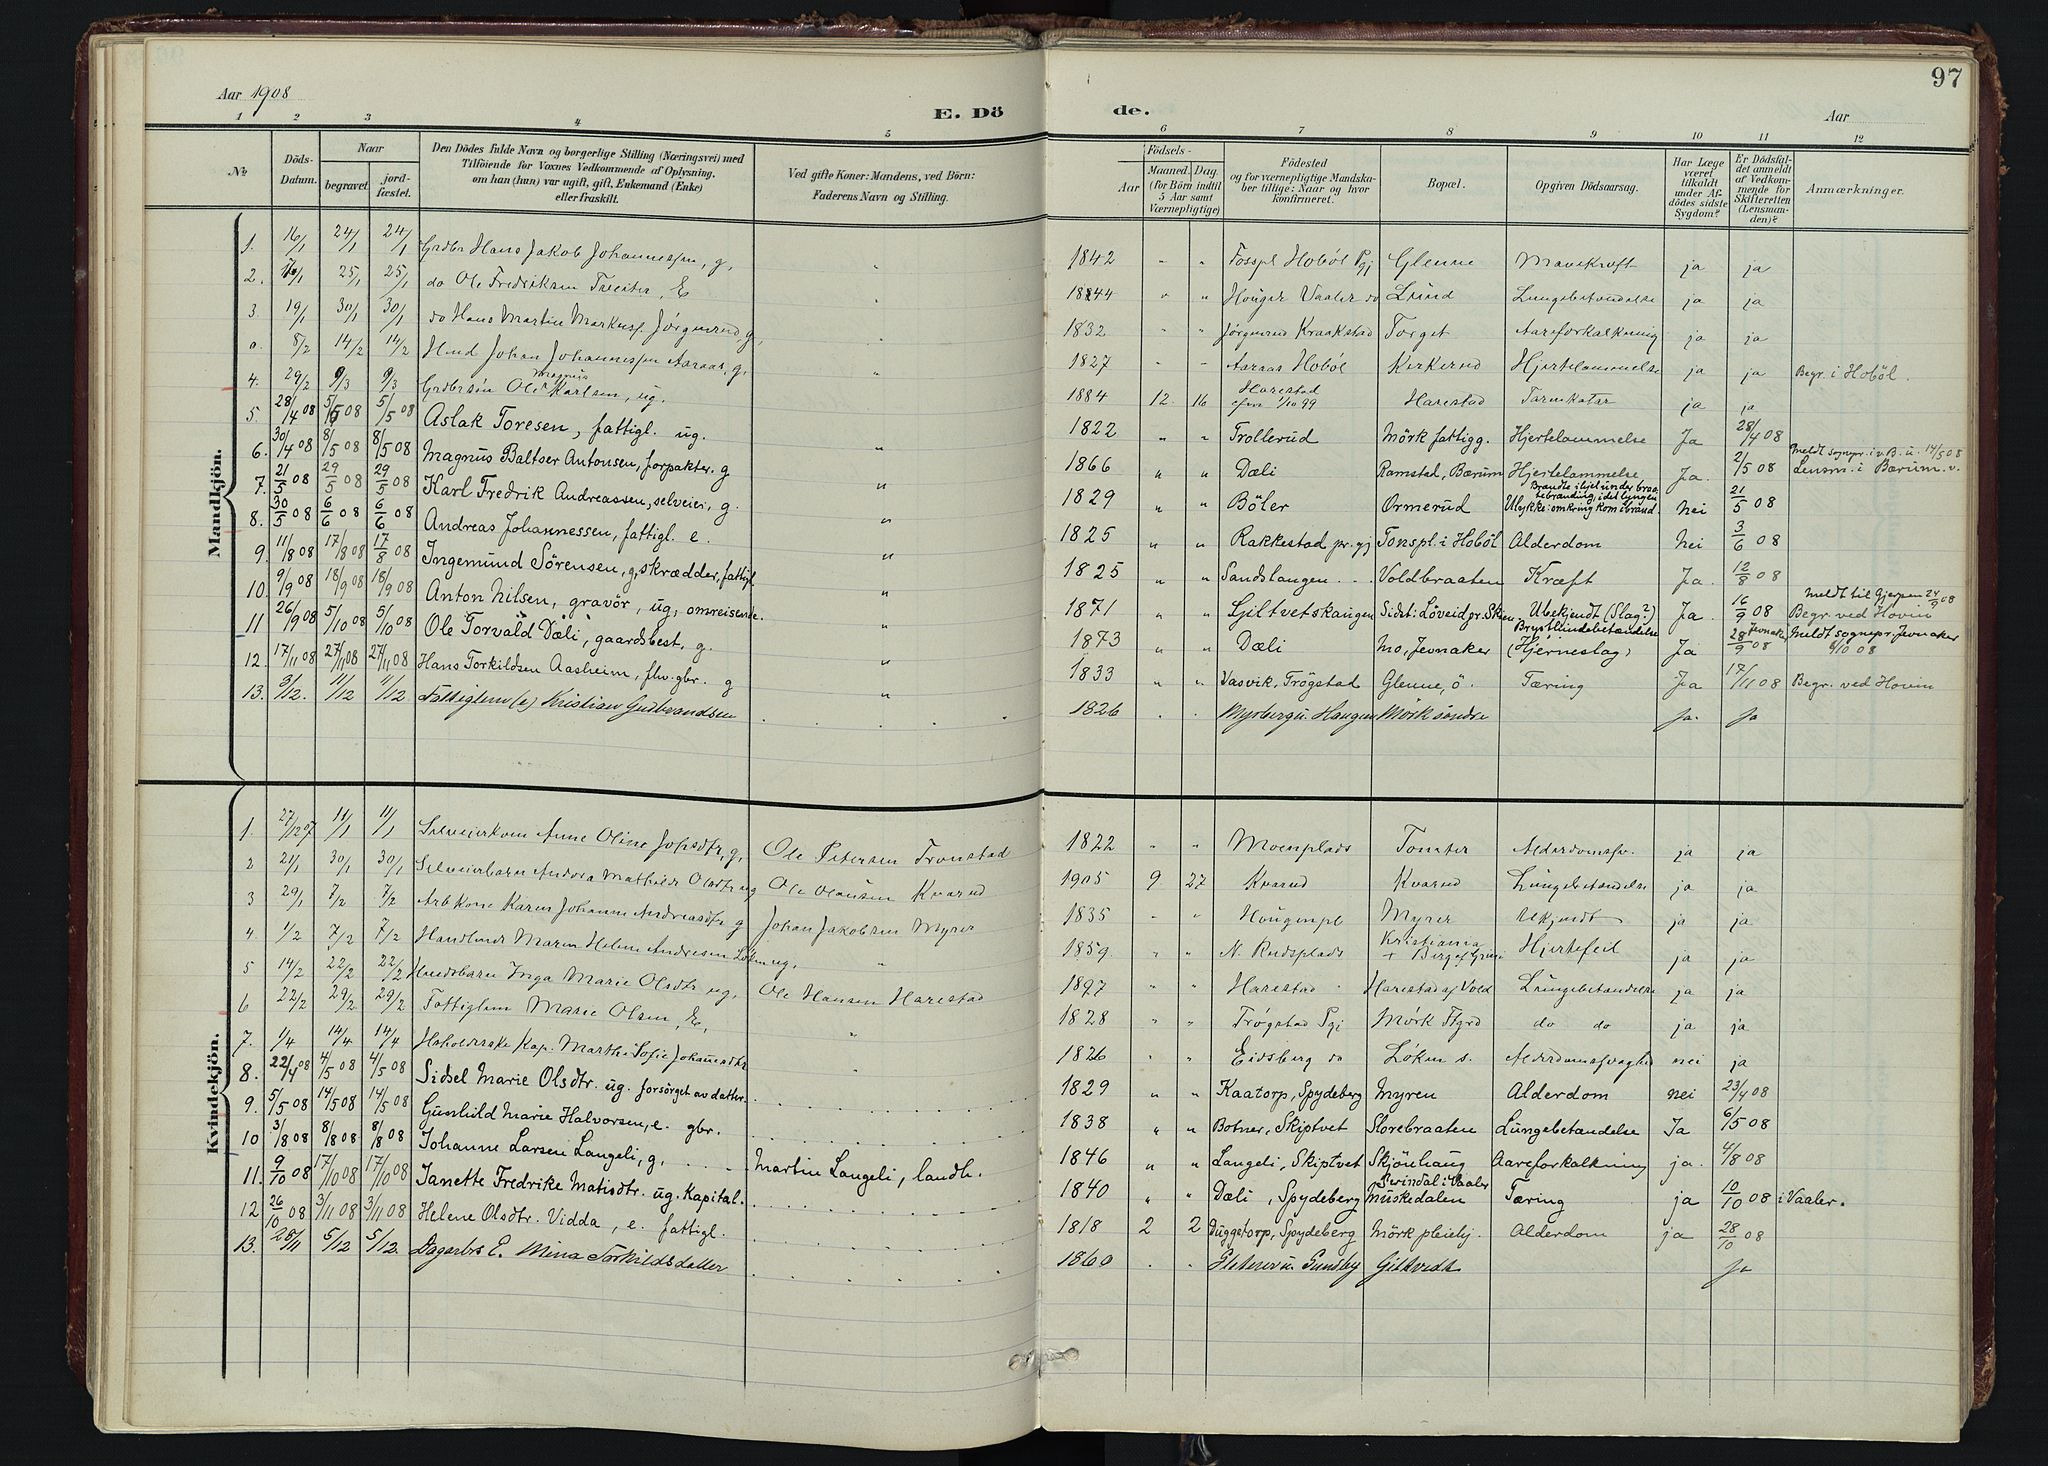 97
Aar 1908
E. Dö de.
Aar
1 2 3 4 5 6 7 8 9 10 11 12
No. Döds-Datum. Naar begravet. jord-fæstet. Den Dödes fulde Navn og borgerlige Stilling (Næringsvei) med Tilföiende for Voxnes Vedkommende af Oplysning, om han (hun) var ugift, gift, Enkemand (Enke) eller fraskilt. Ved gifte Koner: Mandens, ved Börn: Faderens Navn og Stilling. Födsels- Aar Maaned. Dag. (for Börn indtil 5 Aar samt Værnepligtige) Födested og for værnepligtige Mandska-ber tillige: Naar og hvor konfirmeret. Bopæl. Opgiven Dödsaarsag. Har Læge været tilkaldt under Af-dödes sidste Sygdom? Er Dödsfal-det anmeldt af Vedkom-mende for Skifteretten (Lensman-den)? Anmærkninger.
Mandkjön.
1. 16/1 24/1 24/1 Grdbr Hans Jakob Johannessen, g, " 1842 " " Fosspl Hobøl Pgj Glenne Mavekreft ja ja
2. 25/1 25/1 do Ole Fredriksen Tveiter, E " 1844 " " Houger Vaaler do Lund Lungebetendelse ja ja
3. 19/1 30/1 30/1 do Hans Martin Markusf. Jørgenrud, g, " 1832 " " Jørgenrud Kraakstad Torget Aareforkalkning ja ja
0. 8/2 14/2 14/2 Hmd Johan Johannessen Aaraas, g. " 1827 " " Aaraas Hobøl Kirkerud Hjertelammelse ja ja Begr. i Hobøl.
4. 29/2 9/3 9/3 Grdbrsøn Ole Magnus Karlsen, ug. 1884 12. 16 Harestad cfm 1/10 99 Harestad Tarmkatar ja ja
5. 28/4 08 5/5 08 5/5 08 Aslak Toresen, fattigl. ug. 1822 " " Trollerud Mörk fattigg. Hjertelammelse Ja 28/4 08
6. 30/4 08 8/5 08 8/5 08 Magnus Baltser Antonsen, forpakter. g " 1866 " " Dæli Ramstad, Bærum Hjertelammelse Ja. 2/5 08 Meldt sognepr. i v. B. u. 14/5 08 Lensm. i Bærum. v.
7. 21/5 08 29/5 08 29/5 08 Karl Fredrik Andreassen, selveier, g. " 1829 " " Böler Ormerud Brændte ihjel under braa-tebrænding, idet lyngen Ulykke: omkring kom i brand nei 21/5 08
8. 30/5 08 6/6 08 6/6 08 Andreas Johannessen, fattigl. e. " 1825 " " Rakkestad pr. gj Tonspl. i Hoböl Alderdom nei 3/6 08
9. 11/8 08 17/8 08 17/8 08 Ingemund Sörensen, g, skrædder, fattigl. " 1825 " " Sandstangen Voldbraaten Kræft Ja. 12/8 08
10. 9/9 08 18/9 08 18/9 08 Anton Nilsen, gravör, ug, omreisende. " 1871 " " Gjiltvetskaugen Sidst: Löveid pr. Skien Ubekjendt (Slag?) Ja. 16/9 08 Meldt til Gjerpen 24/9 08 Begr. ved Hovin
11 26/9 08 5/10 08 5/10 08 Ole Torvald Dæli, gaardsbest. g. " 1873 " " Dæli Mo, Jevnaker Brysthindebetændelse (Hjerneslag) Ja 28/9 08 Jevnaker Meldt sognepr. Jevnaker 6/10 08
12. 17/11 08 27/11 08 27/11 08 Hans Torkildsen Aasheim, fhv. gbr. g " 1833 " " Vasvik, Trögstad Glenne, ö. Tæring Ja 17/11 08 Begr. ved Hovin
13. 3/12. 11/12 11/12 Fattiglem (e) Kristian Gudbrandsen 1826 . . Myrberg u. Haugen Mörk söndre ja. ja
Kvindekjön.
1. 27/12 07 11/1 11/1 Selveierkone Anne Oline Johsdtr, g, Ole Petersen Tronstad 1822 " " Moenplads Tomter Alderdomssv. ja ja
2 21/1 30/1 30/1 Selveierbarn Andora Mathilde Olsdtr ug Ole Olausen Kvarud 1905 9 27 Kvarud Kvarud Lungebetendelse ja ja
3 29/1 7/2 7/2 Arb Kone Karen Johanne Andreasdtr g Johan Jakobsen Myrer 1835 " " Hougenpl Myrer Ukjendt ja ja.
4. 1/2 7/2 7/2 Handlende Maren Helene Andresen Løken ug, " 1859. " " N. Rudsplads Kristiania + Berge Hjertefeil ja ja
5 14/2 22/2 22/2 Husbarn Inga Marie Olsdtr ug, Ole Hansen Harestad 1897 " " Harestad Harestad af Vold Lungebetendelse ja ja
6 22/2 29/2 29/2 Fattiglem Marie Olsen, E, " 1828 " " Trøgstad Pgj Mørk Ftgrd do do ja ja
7. 1/4 14/4 14/4 Kap. Marthe Sofie Johannesdtr " 1826 " " Eidsberg do Løken s. Alderdomssvaghed nei ja
8. 22/4 08 4/5 08 4/5 08 Sidsel Marie Olsdtr. ug. forsörget av datter. 1829 " " Kaatorp, Spydeberg Myren Alderdom nei 23/4 08
9. 5/5 08 14/5 08 14/5 08 Gunhild Marie Halvorsen, e. gbr. 1838 " " Botner, Skiptvet Storebraaten Lungebetændelse Ja 6/5 08
10 3/8 08 8/8 08 8/8 08 Johanne Larsen Langeli, g. Martin Langeli, landh. 1846 " " Langeli, Skiptvet Skjönhaug Aareforkalkning ja. 4/8 08
11. 9/10 08 17/10 08 17/10 08 Janette Fredrike Matisdtr. ug. Kapital. 1840 " " Dæli, Spydeberg Svindal i Vaaler Muskedalen Tæring ja 10/10 08 i Vaaler.
12 26/10 08 3/11 08 3/11 08 Helene Olsdtr. Vidda, e. fattigl. 1818 2 2 Duggetorp, Spydeberg Mörk pleiehj. Alderdom ja 28/10 08
13. 28/11 5/12 5/12. Dagarbs E. Mina Torkildsdatter 1860 . . u Gundby Giltvedt ja